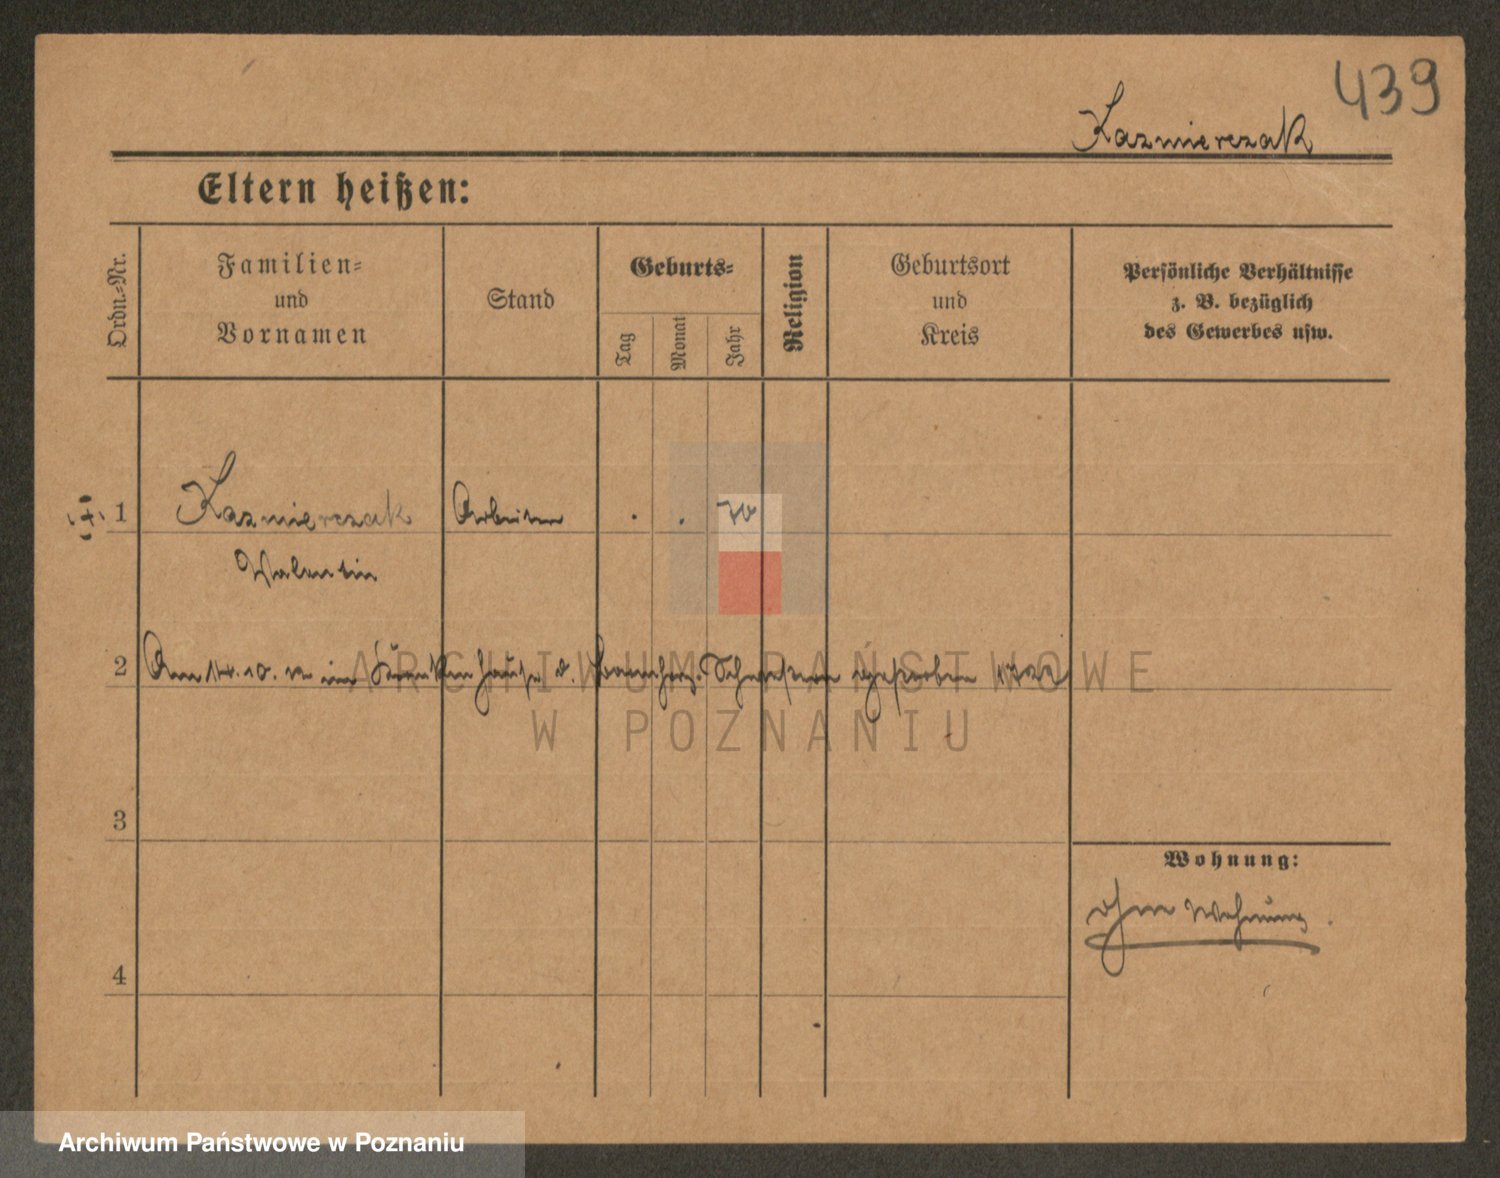 439
Kazmierczak
Eltern heißen:
Ordn.-Nr.
Familien-
und
Vornamen
Stand
Geburts-
Tag
Monat
Jahr
Religion
Geburtsort
und
Kreis
Persönliche Verhältnisse
z. B. bezüglich
des Gewerbes usw.
1 Kazmierczak Arbeiter . . 70
Valentin
2 Am 14. 10. im Krankenhause d. barmherz. Schwestern gestorben
3
4
Wohnung:
ohne Wohnung.
ARCHIWUM PAŃSTWOWE
W POZNANIU
Archiwum Państwowe w Poznaniu